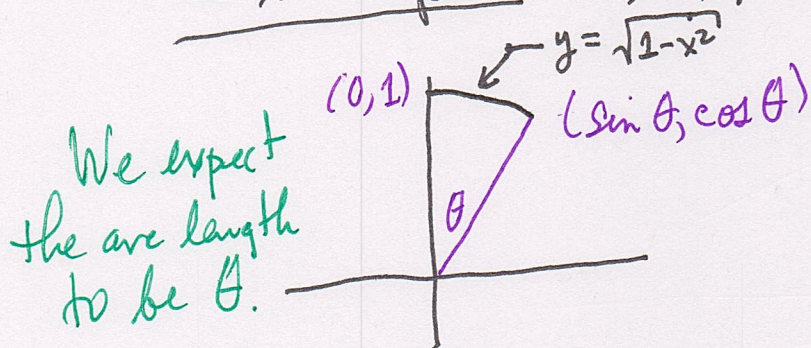 y = √(1-x²)
(0,1)
(sin θ, cos θ)
We expect
the arc length
to be θ.
θ